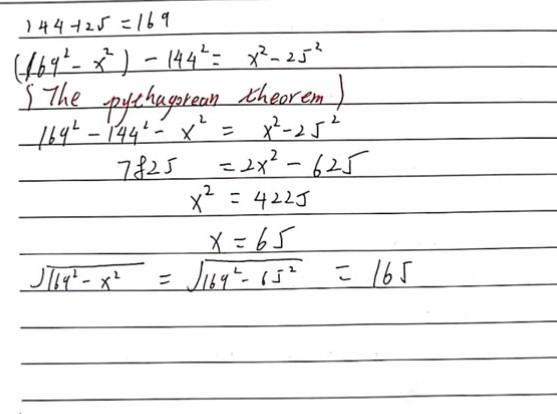 144+25=169
(169²-x²)-144²= x²-25²
(The pythagorean theorem)
169²-144²-x² = x²-25²
7825 =2x²-625
x² = 4225
x=65
√169²-x² = √169²-65² = 165